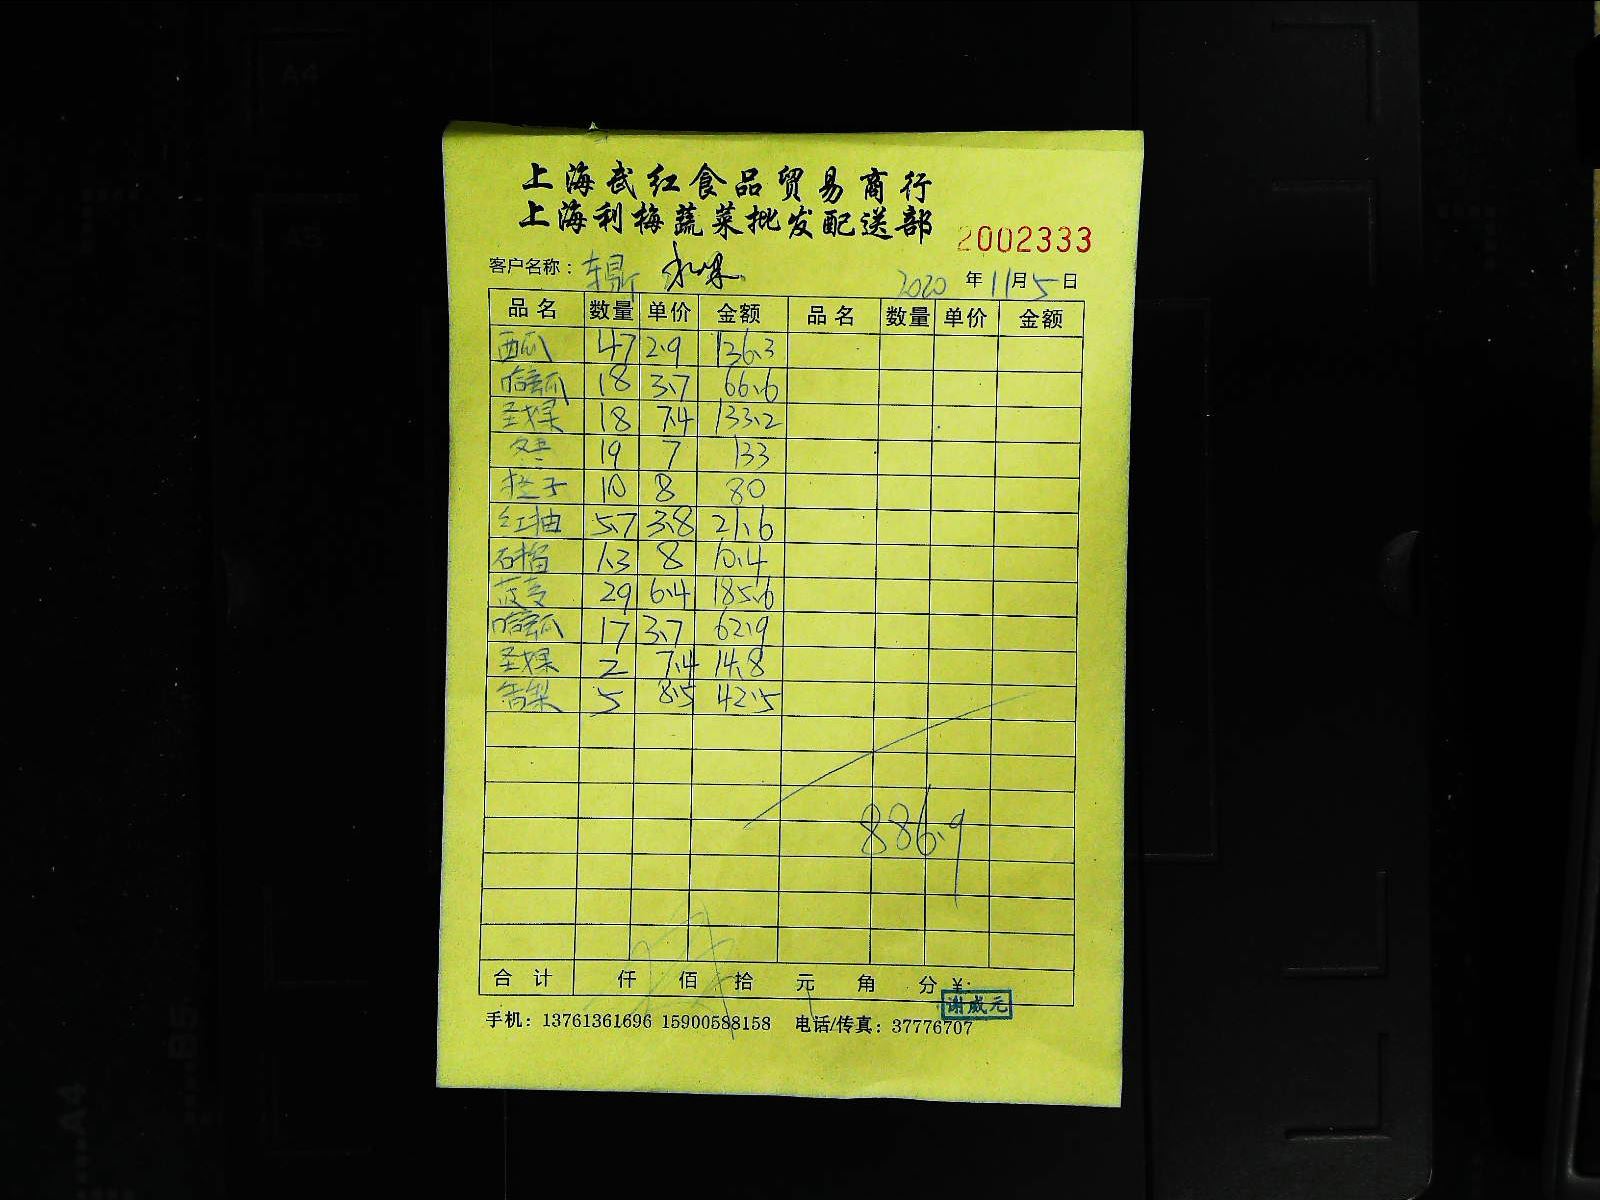 上海武红食品贸易商行
上海利梅蔬菜批发配送部
2002333
客户名称: 东鼎 2020 年 11 月 5 日
品名 数量 单价 金额 品名 数量 单价 金额
西瓜 47 2.9 136.3
哈密瓜 18 3.7 66.6
圣女果 18 7.4 133.2
冬枣 19 7 133
橙子 10 8 80
红柚 5.7 3.8 21.6
石榴 1.3 8 10.4
29 6.4 185.6
哈密瓜 17 3.7 62.9
圣女果 2 7.4 14.8
香梨 5 8.5 42.5
886.9
合计 仟 佰 拾 元 角 分 ¥:
谢威元
手机: 13761361696 15900588158 电话/传真: 37776707
A4
A5
B5
A4